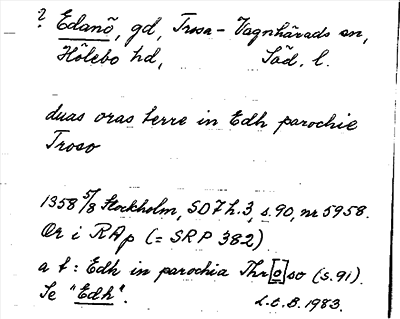 ? Edanö, gd, Trosa-Vagnhärads sn,
Hölebo hd, Söd. l.
duas oras terre in Edh parochie
Troso
1358 5/8 Stockholm, SD 7 h. 3, s. 90, nr 5958.
Or i RAp (= SRP 382)
a t : Edh in parochia Thr[o]so (s. 91).
Se "Edh".
L.E.B. 1983.